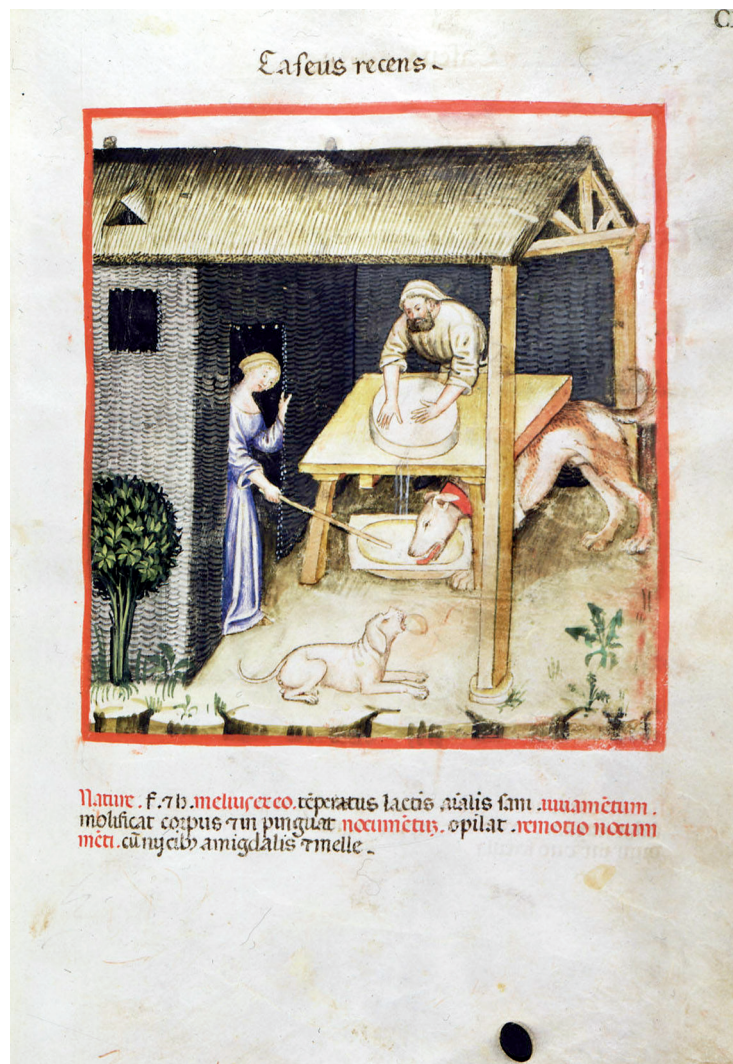 C
Caseus recens.
Nature. f. ⁊ h. melius ex eo. tēperatus lactis aīalis sani. iuuamētum.
molificat corpus ⁊ inpinguat nocumētū. opilat. remotio nocum
mēti. cū nucibꝫ amigdalis ⁊ melle.